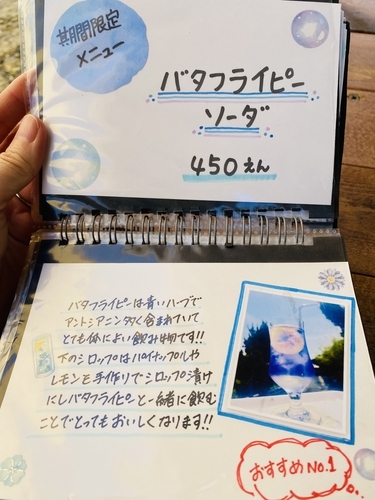 期間限定
メニュー
バタフライピー
ソーダ
450えん
バタフライピーは青いハーブで
アントシアニンが多く含まれていて
とても体によい飲み物です!!
下のシロップはパイナップルや
レモンを手作りでシロップ漬け
にしバタフライピーと一緒に飲む
ことでとってもおいしくなります!!
おすすめNO.1